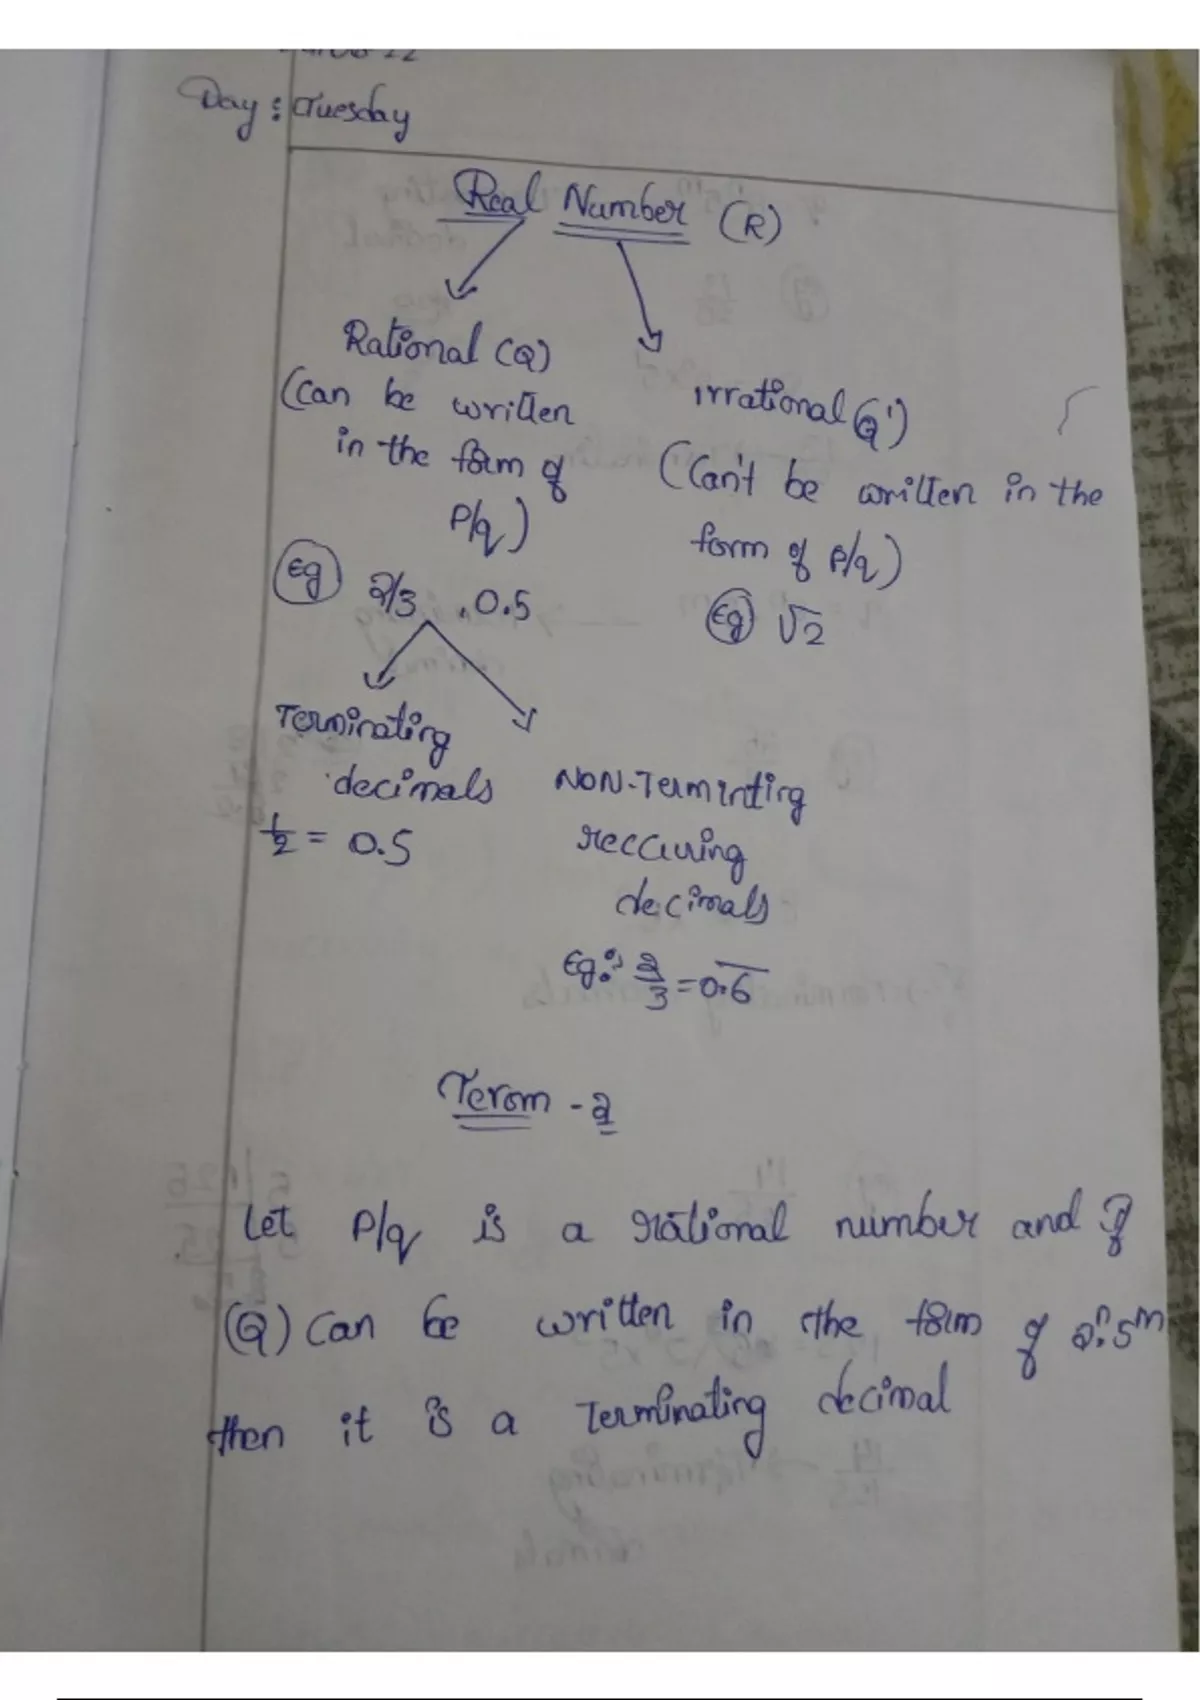 Day : Tuesday
Real Number (R)
Rational (Q)
(Can be written
in the form of
P/q)
Eg 2/3, 0.5
irrational (Q')
(Can't be written in the
form of P/q)
Eg √2
Terminating
decimals
1/2 = 0.5
NON-Terminting
reccuring
decimals
Eg: 2/3 = 0.6̅
Terom - 2
Let P/q is a rational number and if
(Q) can be written in the form of 2ⁿ.5ᵐ
then it is a Terminating decimal